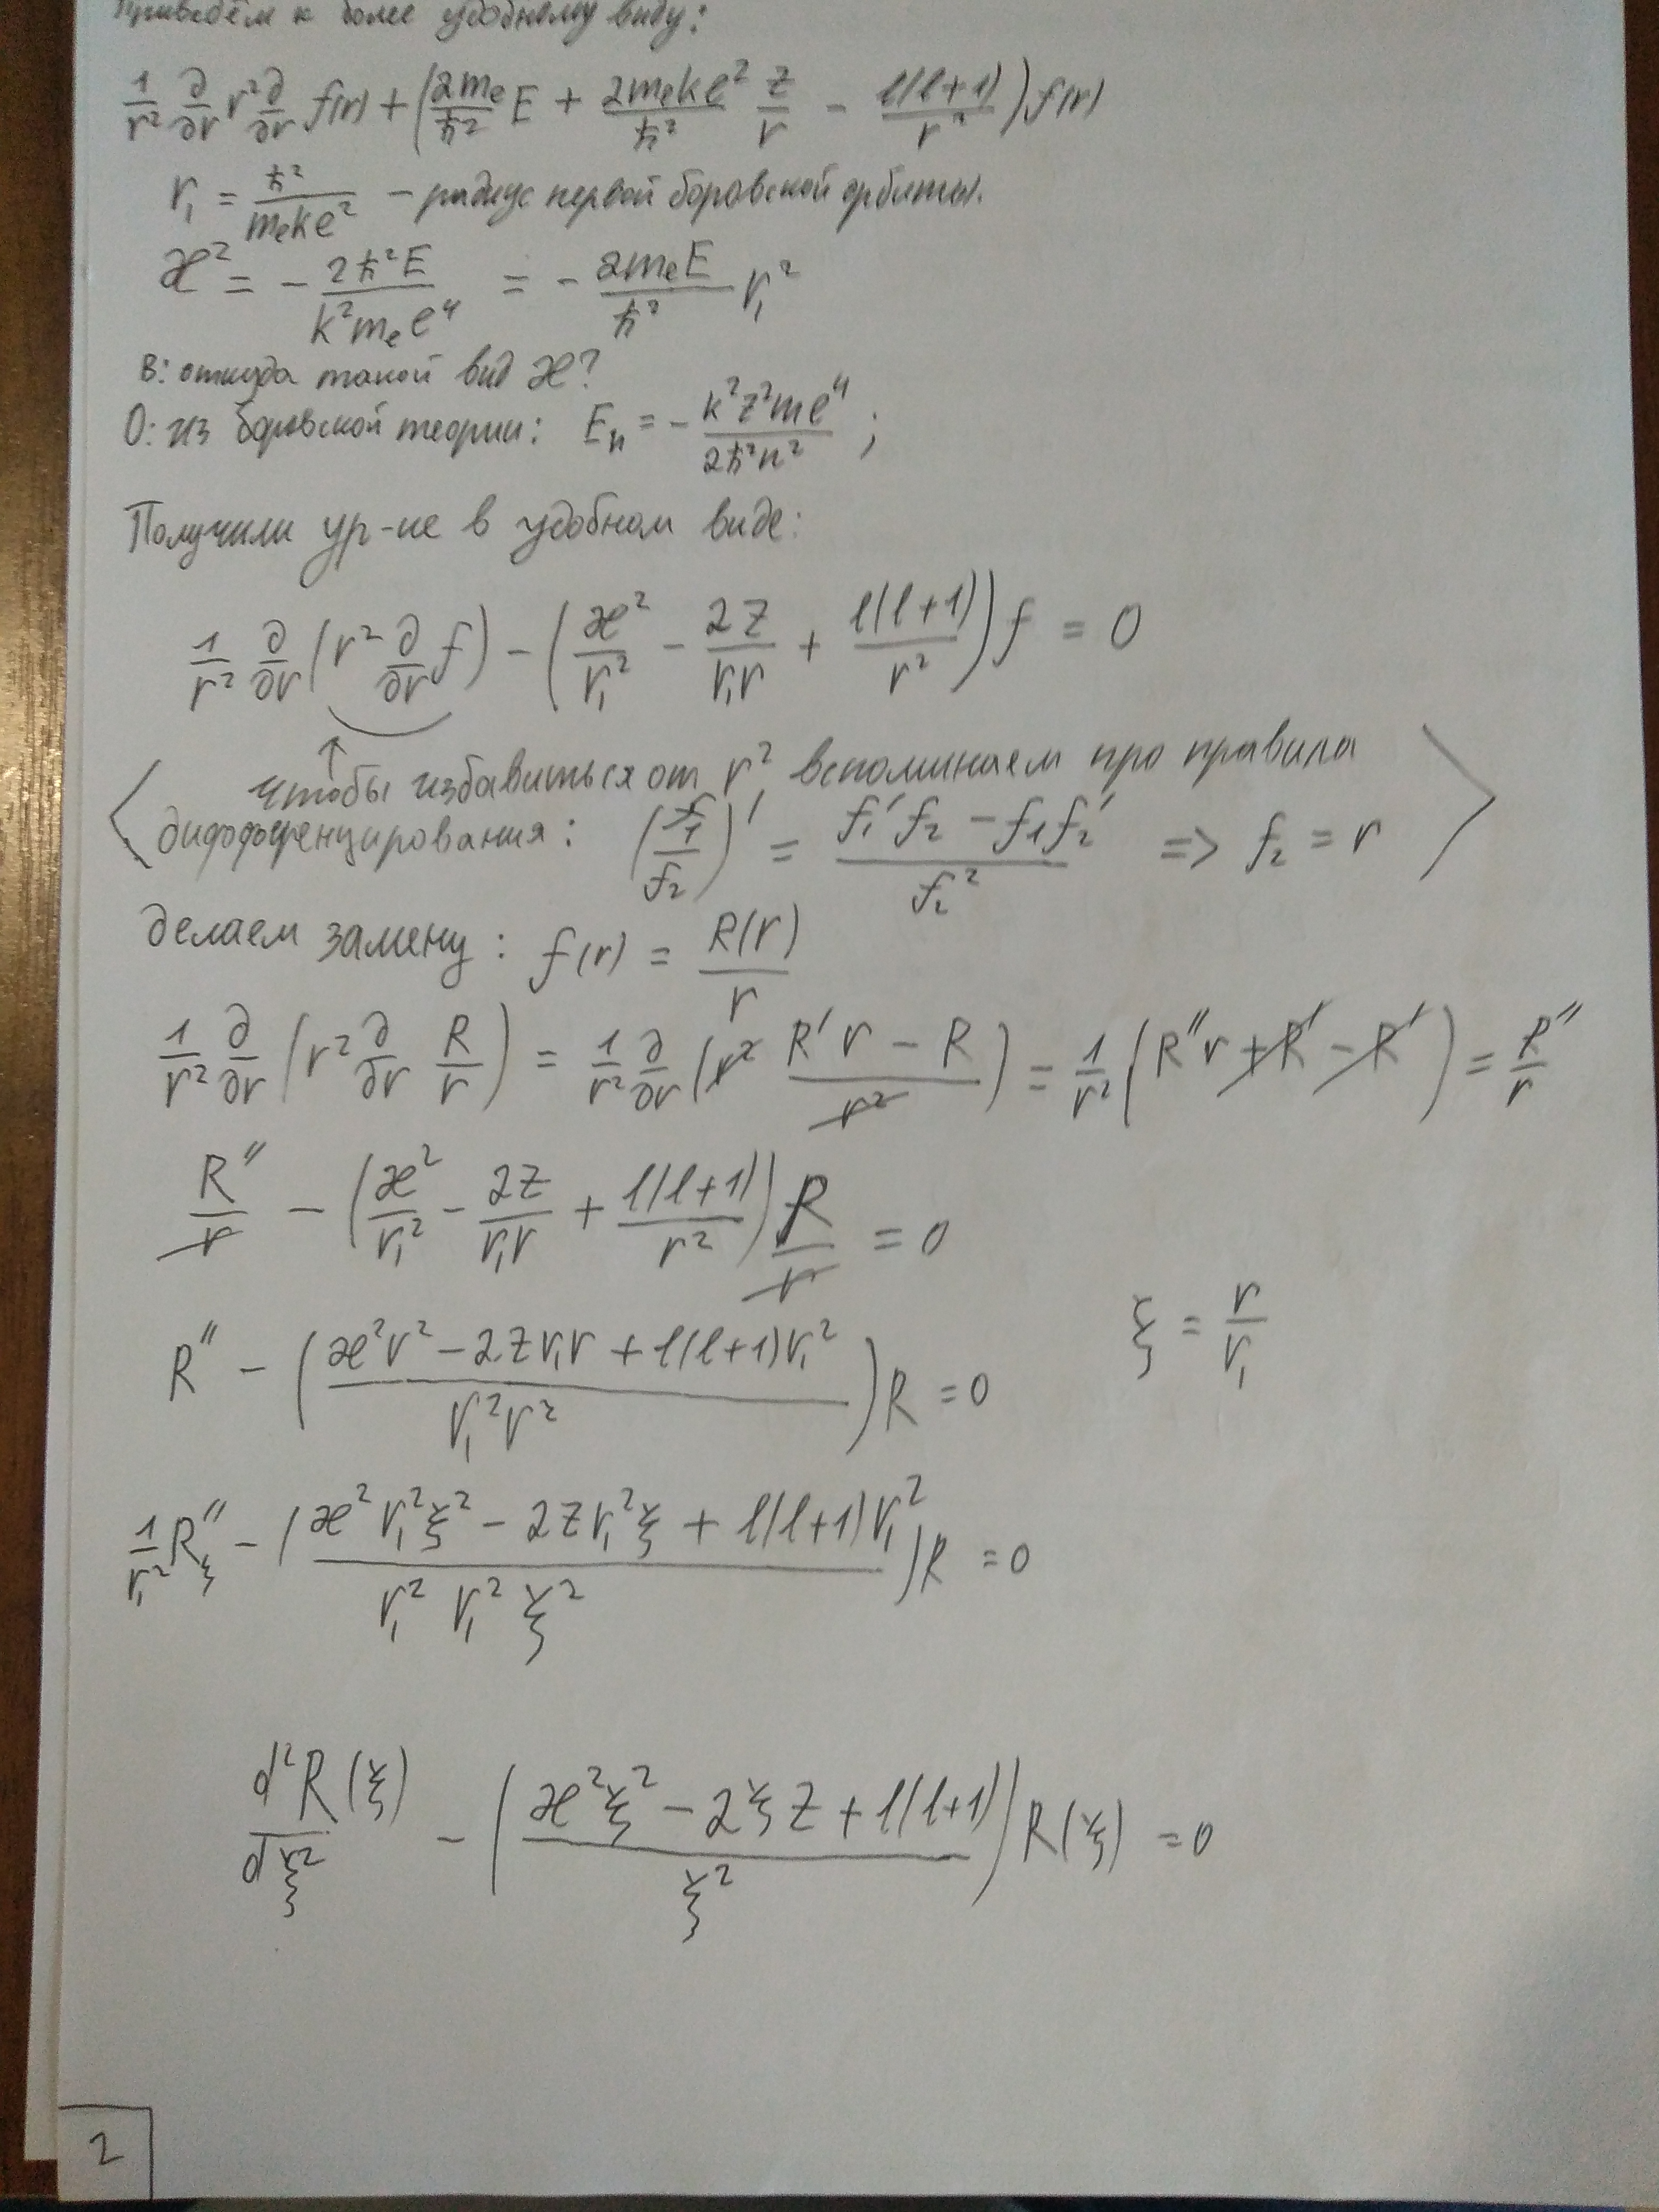 Приведём к более удобному виду:
1/r² ∂/∂r r² ∂/∂r f(r) + (2mₑ/ħ² E + 2mₑke²/ħ² z/r − l(l+1)/r²) f(r)
r₁ = ħ²/mₑke² – радиус первой боровской орбиты.
æ² = − 2ħ²E/k²mₑe⁴ = − 2mₑE/ħ² r₁²
В: откуда такой вид æ?
О: из боровской теории: Eₙ = − k²z²me⁴/2ħ²n² ;
Получили ур-ие в удобном виде:
1/r² ∂/∂r (r² ∂/∂r f) − (æ²/r₁² − 2z/r₁r + l(l+1)/r²) f = 0
↑
чтобы избавиться от r², вспоминаем про правила
дифференцирования: (f₁/f₂)′ = (f₁′f₂ − f₁f₂′)/f₂² => f₂ = r
делаем замену: f(r) = R(r)/r
1/r² ∂/∂r (r² ∂/∂r R/r) = 1/r² ∂/∂r (r² (R′r − R)/r²) = 1/r² (R″r + R′ − R′) = R″/r
R″/r − (æ²/r₁² − 2z/r₁r + l(l+1)/r²) R/r = 0
R″ − ((æ²r² − 2zr₁r + l(l+1)r₁²)/r₁²r²) R = 0 ξ = r/r₁
1/r₁² R″ξ − ((æ²r₁²ξ² − 2zr₁²ξ + l(l+1)r₁²)/r₁² r₁² ξ²) R = 0
d²R(ξ)/dξ² − ((æ²ξ² − 2ξz + l(l+1))/ξ²) R(ξ) = 0
2